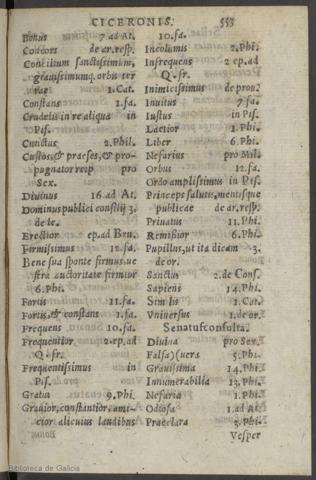 CICERONIS. 553
Bonus 7 ad At.
Concors de ar.resp.
Concilium sanctissimum,
grauissimumq. orbis ter
rae 1.Cat.
Constans 1.fa.
Crudelis in re aliqua in
Pis.
Cunctus 2.Phil.
Custos,& praeses,& pro-
pugnator reip pro
Sex.
Diuinus 16.ad At.
Dominus publici consilij 3.
de le.
Erectior ep.ad Bru.
Firmissimus 12.fa.
Bene sua sponte firmus,ue
stra auctoritate firmior
6.Phi.
Fortis 11.fa.
Fortis,& constans 1.fa.
Frequens 10.fa.
Frequentior 2.ep.ad
Q.fr.
Frequentissimus in
Pis.
Gratus 9.Phi.
Grauior,constantior,ami-
cior alicuius laudibus
10.fa.
Incolumis 2.Phi.
Infrequens 2 ep.ad
Q.fr.
Inimicissimus de prou.
Inuitus 7.fa.
Iustus in Pis.
Laetior 1.Phi.
Liber 6.Phi.
Nefarius pro Mil.
Orbus 12.fa.
Ordo amplissimus in Pis.
Princeps salutis,mentisque
publicae de ar.resp.
Priuatus 11.Phi.
Remissior 6.Phi.
Pupillus,ut ita dicam 3.
de or.
Sanctus 2.de Cons.
Sapiens 14.Phi.
Similis 1.Cat.
Vniuersus 1.de or.
Senatusconsulta.
Diuina pro Sex.
Falsa)(uera 5.Phi.
Grauissima 14.Phi.
Innumerabilia 13.Phi.
Nefaria 1.Phi.
Odiosa 1.ad At.
Praeclara 3.Phi.
Vesper
Biblioteca de Galicia